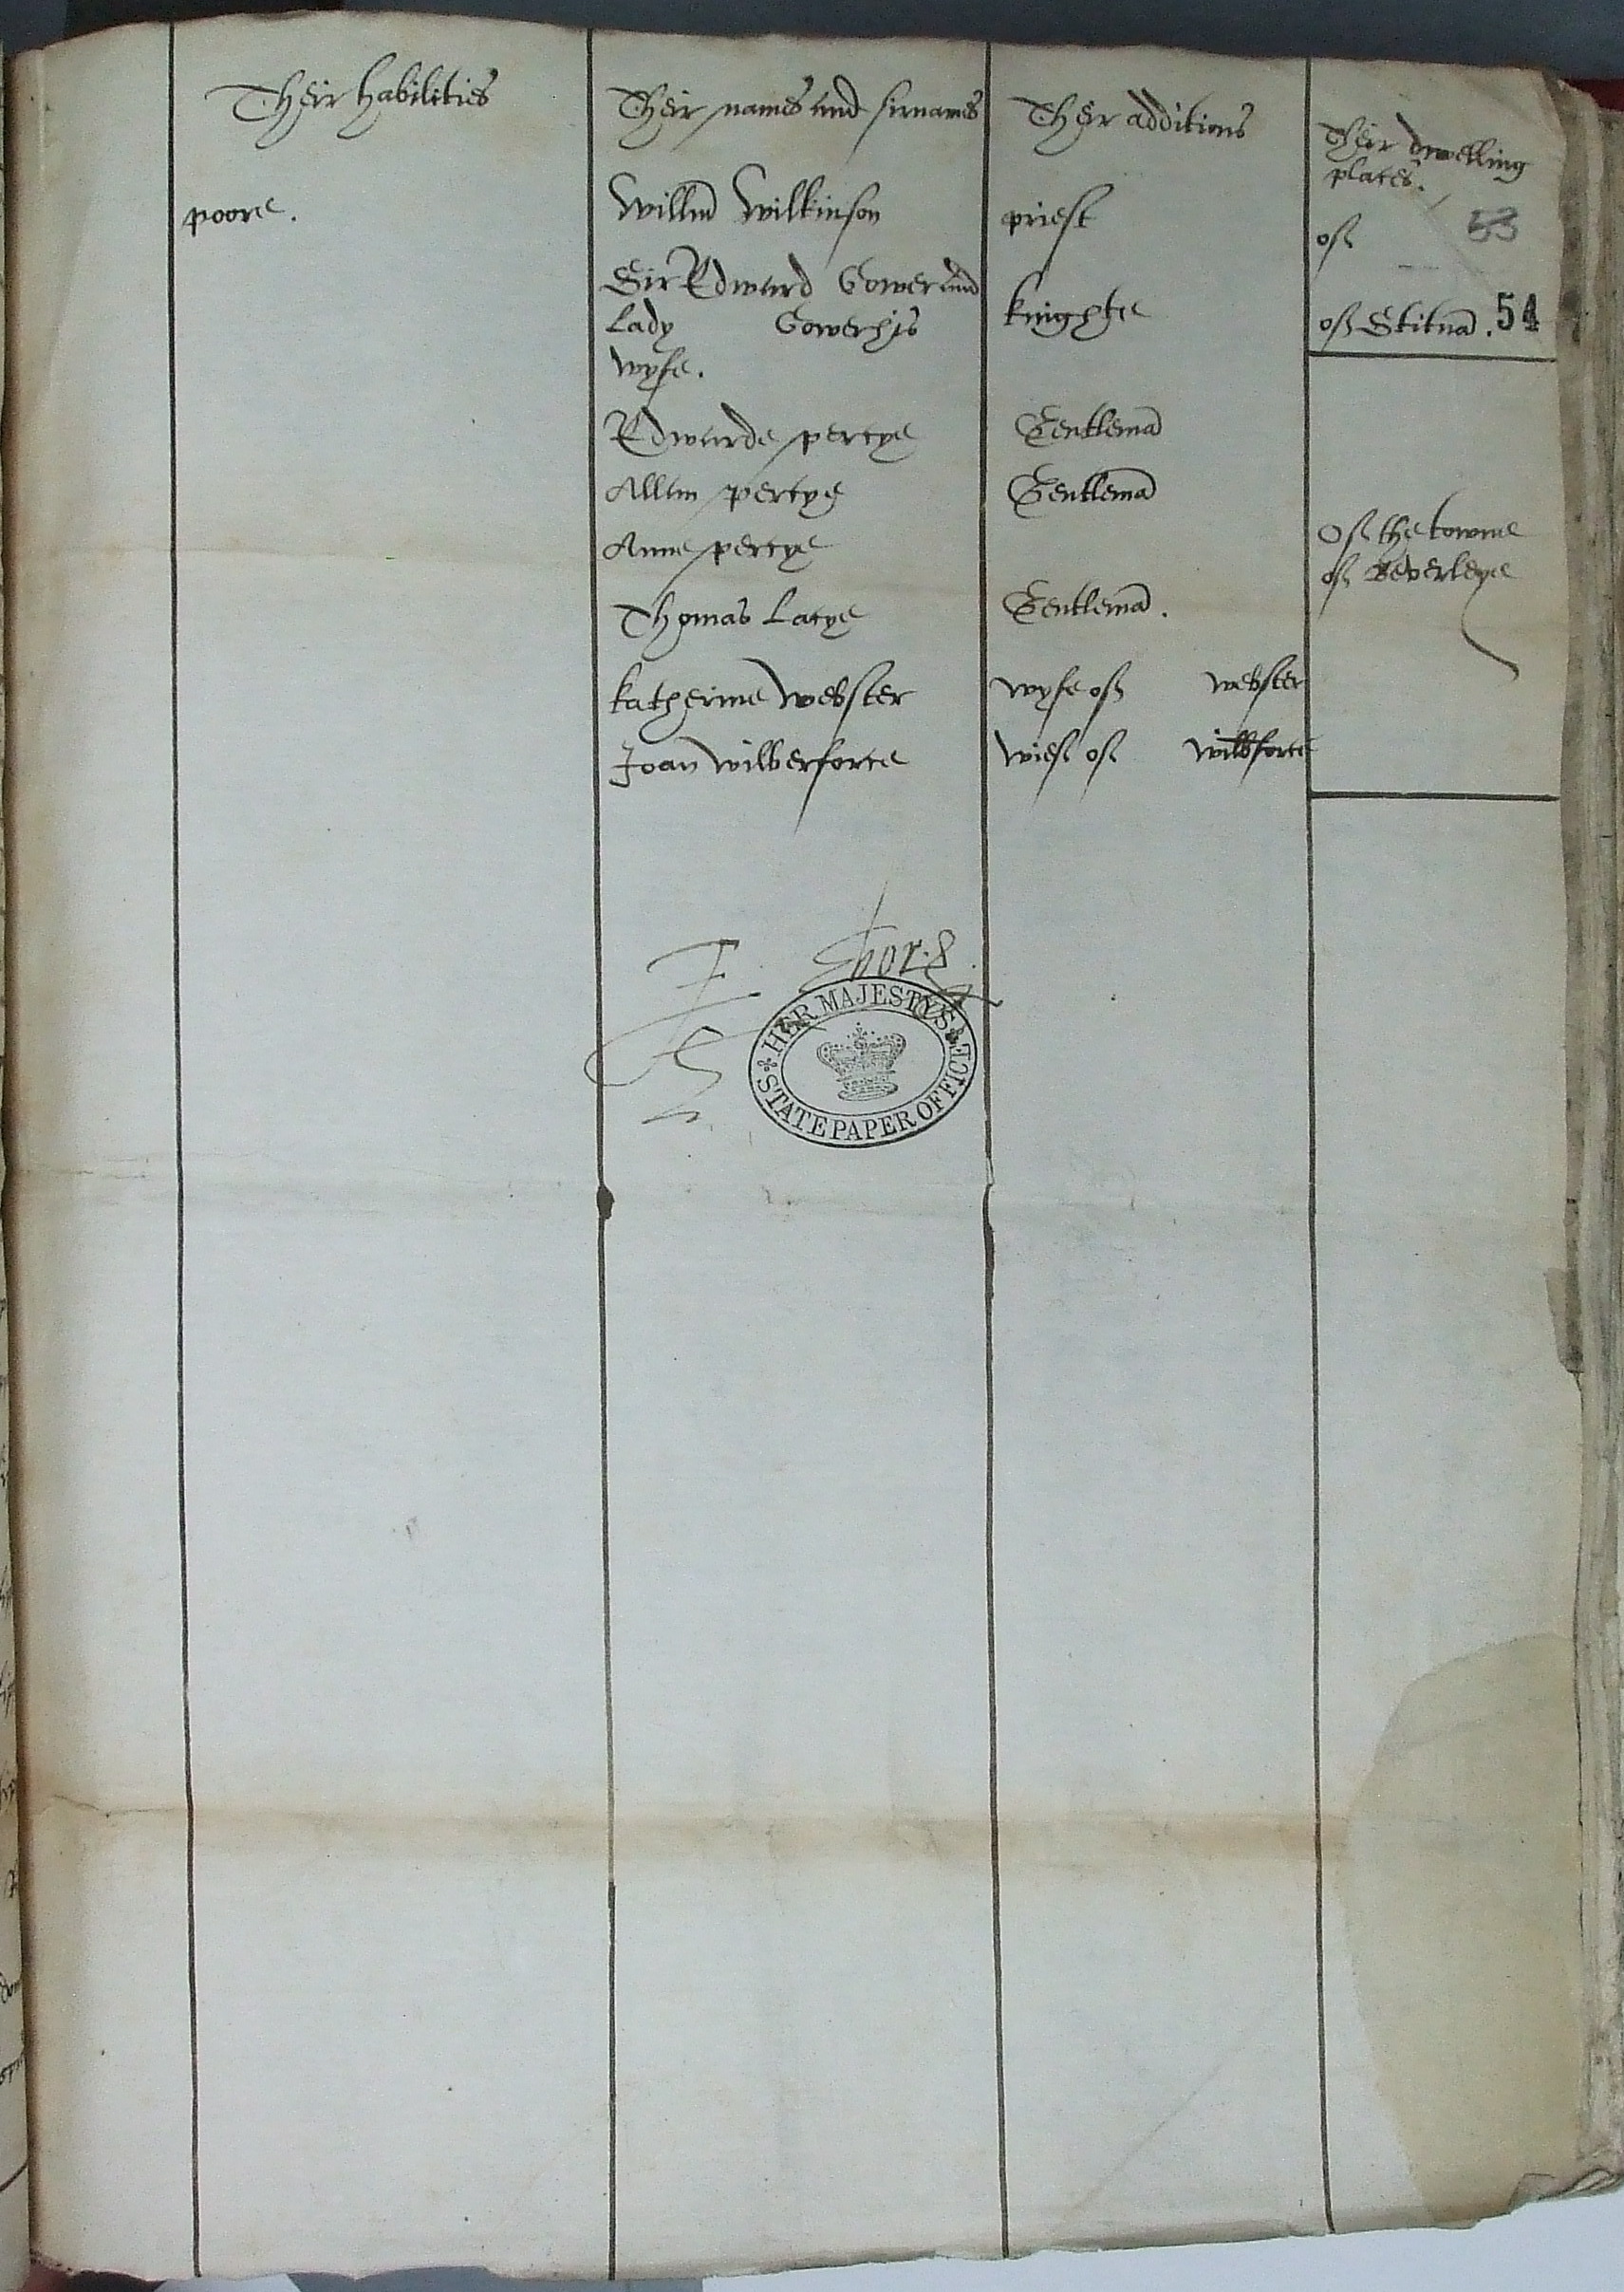 Their habilities
Their names and sirnames
Their additions
Their dwelling
places.
poore.
Willm̄ Wilkinson
priest
of
53
Sir Edward Gower and
Lady Gower his
wyfe.
knighte
of Stitnā.
54
Edwarde percye
Gentlemā
Allan percye
Gentlemā
Anne percye
Of the towne
of Beverleye
Thomas Lacye
Gentlemā.
Katherine webster
wyfe of webster
Joan wilberforce
wief of wilbforce
E. Ebor.
HER MAJESTY'S
STATE PAPER OFFICE